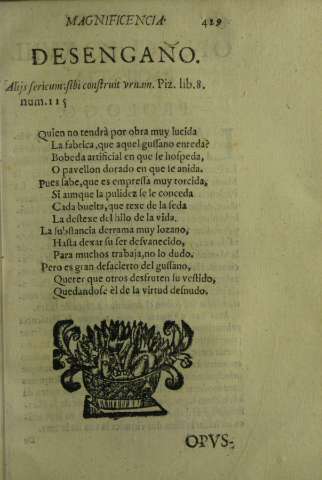 MAGNIFICENCIA. 429
DESENGAÑO.
Alijs sericum: sibi construit vrnam. Piz. lib. 8.
num. 115
Quien no tendrà por obra muy lucida
La fabrica, que aquel gussano enreda?
Bobeda artificial en que se hospeda,
O pavellon dorado en que se anida.
Pues sabe, que es empressa muy torcida,
Si aunque la pulidez se le conceda
Cada buelta, que texe de la seda
La destexe del hilo de la vida.
La substancia derrama muy lozano,
Hasta dexar su ser desvanecido,
Para muchos trabaja, no lo dudo.
Pero es gran desacierto del gussano,
Querer que otros desfruten su vestido,
Quedandose èl de la virtud desnudo.
OPVS-